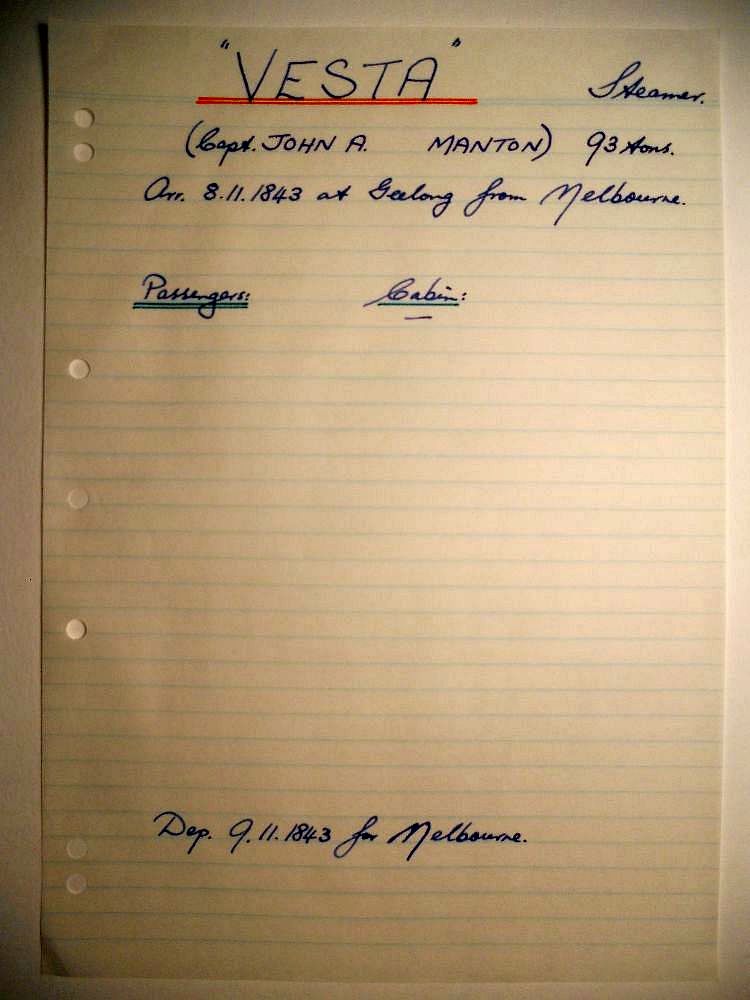 "VESTA" Steamer.
(Capt. JOHN A. MANTON) 93 tons.
Arr. 8.11.1843 at Geelong from Melbourne.
Passengers: Cabin:
—
Dep. 9.11.1843 for Melbourne.